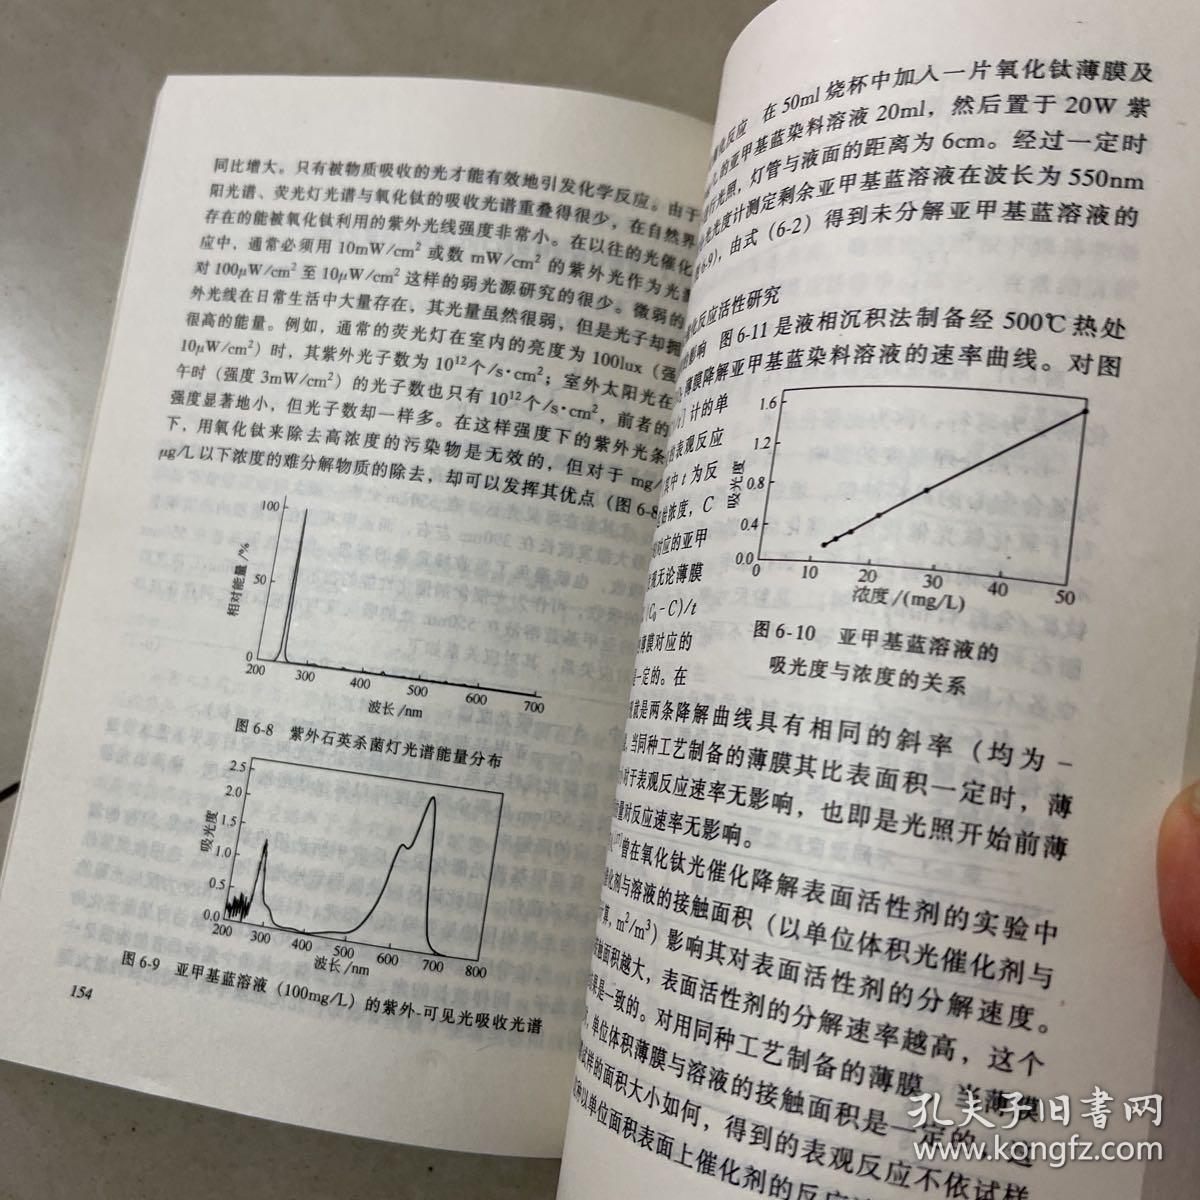 同比增大。只有被物质吸收的光才能有效地引发化学反应。由于
阳光谱、荧光灯光谱与氧化钛的吸收光谱重叠得很少，在自然界
存在的能被氧化钛利用的紫外光线强度非常小。在以往的光催化
应中，通常必须用 10mW/cm² 或数 mW/cm² 的紫外光作为光
对 100μW/cm² 至 10μW/cm² 这样的弱光源研究的很少。微弱的
外光线在日常生活中大量存在，其光量虽然很弱，但是光子却拥
很高的能量。例如，通常的荧光灯在室内的亮度为 100lux（强
10μW/cm²）时，其紫外光子数为 10¹²个/s·cm²；室外太阳光在
午时（强度 3mW/cm²）的光子数也只有 10¹²个/s·cm²，前者的
强度显著地小，但光子数却一样多。在这样强度下的紫外光条
下，用氧化钛来除去高浓度的污染物是无效的，但对于 mg/
μg/L 以下浓度的难分解物质的除去，却可以发挥其优点（图 6-8
100
50
0
相对能量/%
200 300 400 500 600 700
波长/nm
图 6-8 紫外石英杀菌灯光谱能量分布
2.5
2.0
1.5
1.0
0.5
0.0
吸光度
200 300 400 500 600 700 800
波长/nm
图 6-9 亚甲基蓝溶液（100mg/L）的紫外-可见光吸收光谱
154
化反应 在 50ml 烧杯中加入一片氧化钛薄膜及
的亚甲基蓝染料溶液 20ml，然后置于 20W 紫
行光照，灯管与液面的距离为 6cm。经过一定时
光光度计测定剩余亚甲基蓝溶液在波长为 550nm
6-9)，由式（6-2）得到未分解亚甲基蓝溶液的
化反应活性研究
影响 图 6-11 是液相沉积法制备经 500℃热处
薄膜降解亚甲基蓝染料溶液的速率曲线。对图
计的单
表观反应
其中 t 为反
始浓度，C
对应的亚甲
无论薄膜
(C₀-C)/t
薄膜对应的
一定的。在
1.6
1.2
0.8
0.4
0.0
吸光度
0 10 20 30 40 50
浓度/(mg/L)
图 6-10 亚甲基蓝溶液的
吸光度与浓度的关系
就是两条降解曲线具有相同的斜率（均为 -
当同种工艺制备的薄膜其比表面积一定时，薄
对于表观反应速率无影响，也即是光照开始前薄
量对反应速率无影响。
曾在氧化钛光催化降解表面活性剂的实验中
化剂与溶液的接触面积（以单位体积光催化剂与
算，m²/m³）影响其对表面活性剂的分解速度。
触面积越大，表面活性剂的分解速率越高，这个
结果是一致的。对用同种工艺制备的薄膜，当薄膜
单位体积薄膜与溶液的接触面积是一定的，这
试样的面积大小如何，得到的表观反应不依试样
以单位面积表面上催化剂的反应
孔夫子旧书网
www.kongfz.com